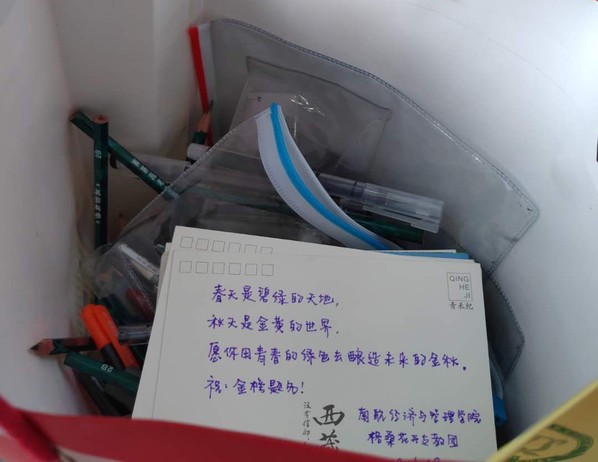 QING
HE
JI
青禾纪
春天是碧绿的天地,
秋天是金黄的世界.
愿你用青春的绿色去酿造未来的金秋.
祝:金榜题名!
南航经济与管理学院
格桑花开支教团
西
2B